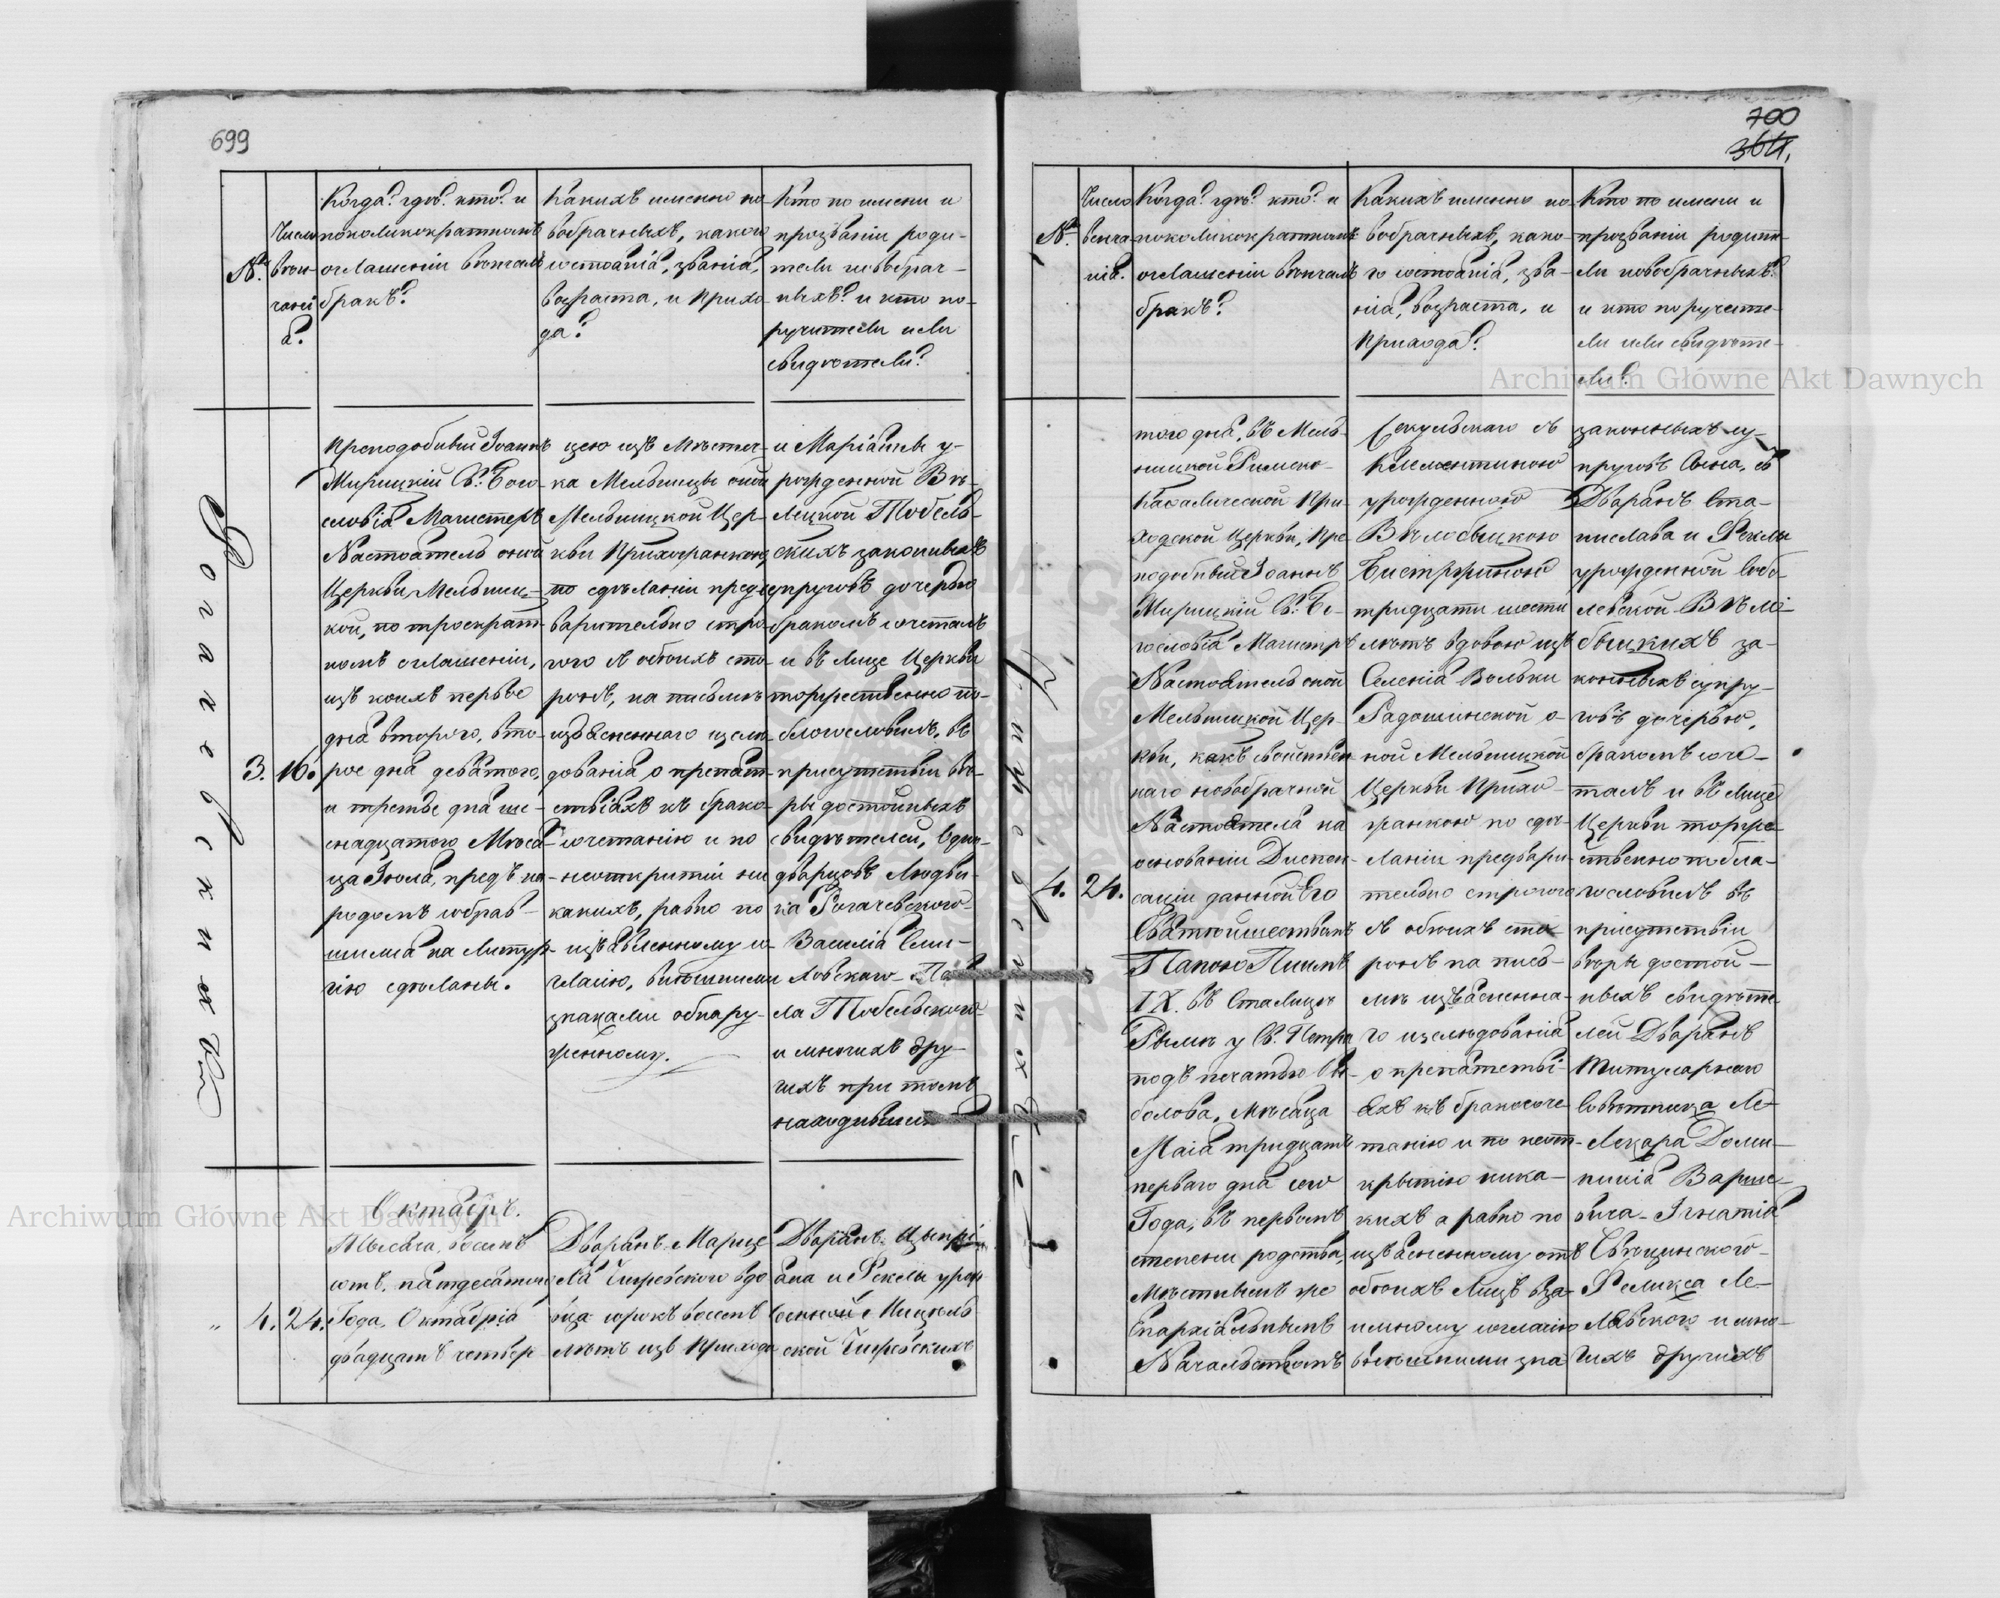 699
№
Число
вѣн-
чані
я?
Когда? гдѣ? кто? и
поколикократномъ
оглашеніи вѣнчалъ
бракъ?
Какихъ именно но-
вобрачныхъ, какого
состоянія, званія,
возраста, и прихо-
да?
Кто по имени и
прозванію роди-
тели новобрач-
ныхъ? и кто по-
ручители или
свидѣтели?
3.
16.
Преподобный Іоаннъ
Мирицкій Св. Бого-
словія Магистеръ
Настоятель оной
Церкви Мельниц-
кой, по троекрат-
номъ оглашеніи,
изъ коихъ первое
дня второго, вто-
рое дня девятого,
и третье дня ше-
снадцатого Мѣся-
ца Іюля, предъ на-
родомъ собрав-
шимся на Литур-
гію сдѣланы.
цею изъ Мѣстеч-
ка Мельницы оной
Мельницкой Цер-
кви Прихожанкою,
по сдѣланіи пред-
варительно стро-
гого съ обоихъ сто-
ронъ, на письмѣ
изъясненнаго изслѣ-
дованія о препят-
ствіяхъ къ брако-
сочетанію и по
неоткрытіи ни
какихъ, равно по
изъявленному со-
гласію, внѣшними
знаками обнару-
женному.
и Маріанны у-
рожденной Вѣ-
лецкой Тобель-
скихъ законныхъ
супруговъ дочерью
бракомъ сочеталъ
и въ Лице Церкви
торжественно по-
благословилъ, въ
присутствіи вѣ-
ры достойныхъ
свидѣтелей, Одно-
дворцовъ Людви-
ка Рогачевского
Василія
ловского
ла Тобельского
и многихъ дру-
гихъ при томъ
находившихся
Октябрь.
„
4.
24.
Тысяча восемь
сотъ пятдесятого
Года, Октября
двадцать четвер-
Дворянъ Марце-
лій Гижевского вдо-
вца сорокъ восемь
лѣтъ изъ Прихода
Дворянъ Ципрі
ана и Феклы урож
ской Гижевскихъ
700
364.
№
Число
вѣнча-
нія.
Когда? гдѣ? кто? и
поколикократномъ
оглашеніи вѣнчалъ
бракъ?
Какихъ именно но-
вобрачныхъ, како-
го состоянія, зва-
нія, возраста, и
Прихода?
Кто по имени и
прозванію родите-
ли новобрачныхъ?
и кто поручите-
ли или свидѣте-
ли?
4.
24.
того дня, въ Мель-
ницкой Римско-
Каѳолической При-
ходской Церкви, Пре-
подобный Іоаннъ
Мирицкій Св. Бо-
гословія Магистръ
Настоятель оной
Мельницкой Цер-
кви, какъ
наго новобрачной
Настоятеля на
основаніи Диспен-
саціи данной Его
Святѣйшествомъ
Папою Піимъ
IX. въ Столицѣ
Рымѣ у Св. Петра
подъ печатью
болова, Мѣсяца
Маія тридцать
перваго дня сего
Года, въ первомъ
степени родства,
мѣстнымъ же
Епархіальнымъ
Начальствомъ
съ
Клементиною
урожденною
Вѣлобыцкою
тридцати шести
лѣтъ вдовою изъ
Селенія Вольки
Радошинской о-
ной Мельницкой
Церкви Прихо-
жанкою по сдѣ-
ланіи предвари-
тельно строгого
съ обоихъ сто-
ронъ на пись-
мѣ изъясненна-
го изслѣдованія
о препятстві-
яхъ къ бракосоче-
танію и по неот-
крытію ника-
кихъ а равно по
изъявленному отъ
обоихъ Лицъ вза-
имному согласію
внѣшними зна
законныхъ су-
пруговъ Сына, съ
Дворянъ Ста-
нислава и Феклы
урожденной
Вѣло-
быцкихъ за-
конныхъ супру-
говъ дочерью,
бракомъ соче-
талъ и въ Лице
Церкви торже-
ственно побла-
гословилъ въ
присутствіи
вѣры достой-
ныхъ свидѣте-
лей Дворянъ
Титулярнаго
Совѣтника Ле-
лекаря Доми-
никія
вича Игнатія
Феликса Ле-
и мно-
гихъ другихъ
Archiwum Główne Akt Dawnych
Archiwum Główne Akt Dawnych